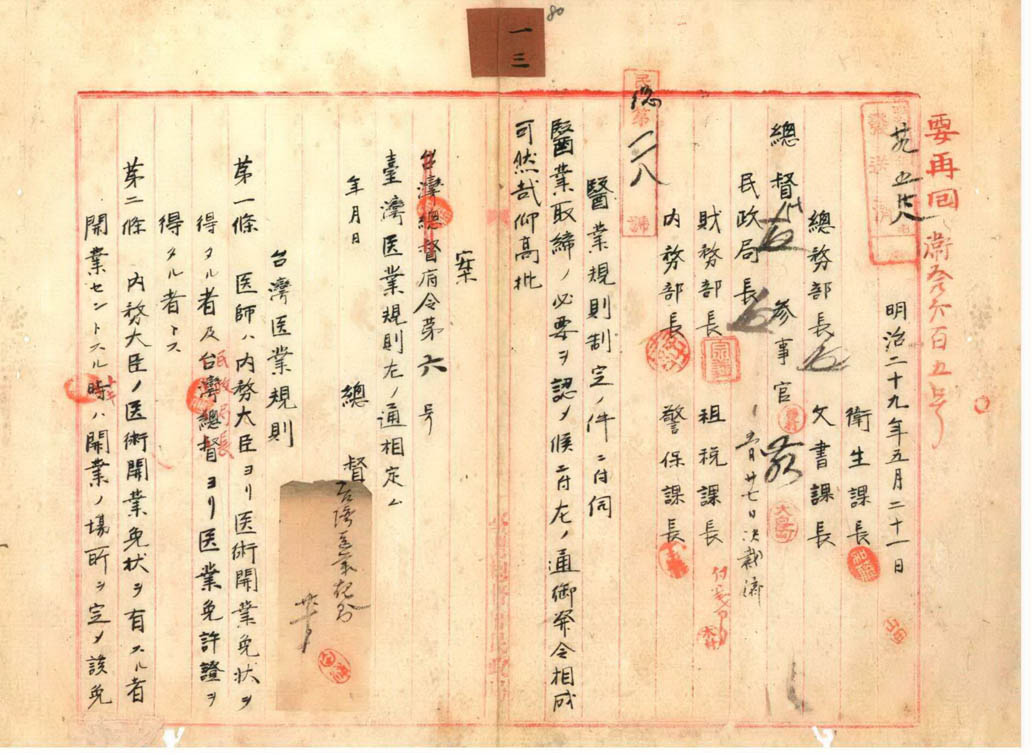 80
一三
要再回
衛第六百五号
明治二十九年五月二十一日
衛生課長
文書課長
總務部長
總督
参事官
五月廿七日決裁済
民政局長
財務部長
租税課長
内務部長
警保課長
民総第二八號
醫業規則制定ノ件ニ付伺
醫業取締ノ必要ヲ認メ候ニ付左ノ通御発令相成
可然哉仰高批
案
台湾總督府令第六号
臺湾医業規則左ノ通相定ム
年月日
總督
台湾医業規則
第一條 医師ハ内務大臣ヨリ医術開業免状ヲ
得タル者及台湾總督ヨリ医業免許證ヲ
民政局長
得タル者トス
第二條 内務大臣ノ医術開業免状ヲ有スル者
開業セントスル時ハ開業ノ場所ヲ定メ該免